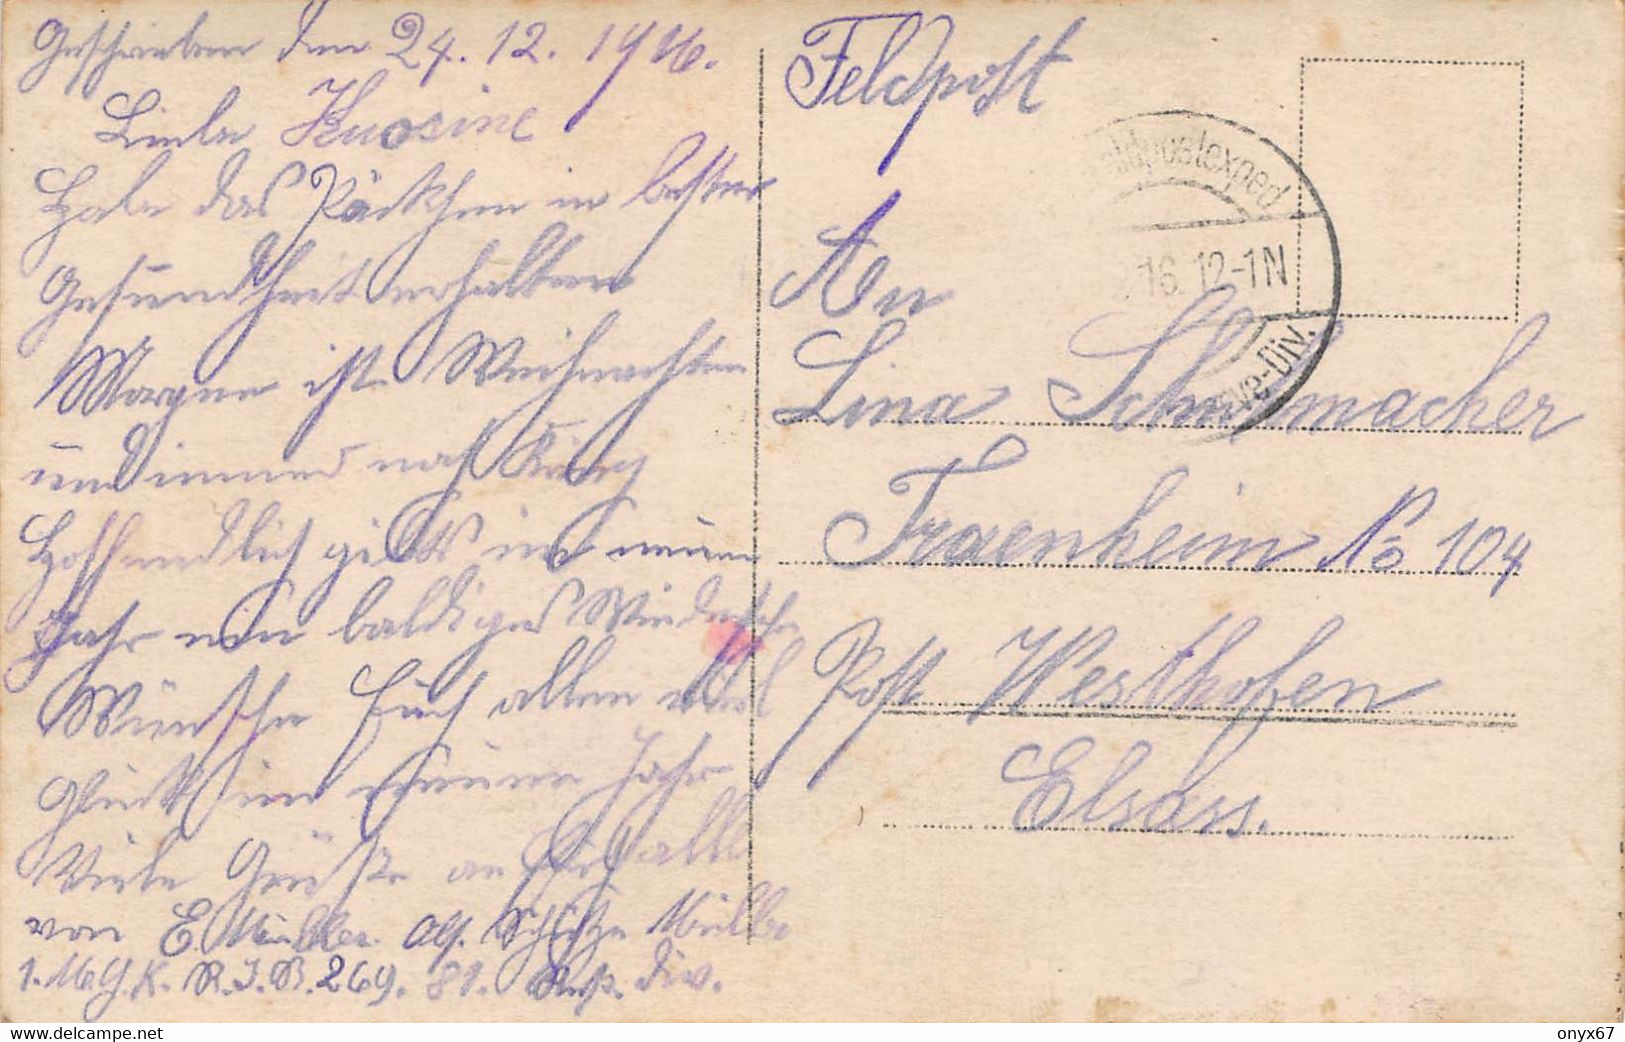 Geschrieben den 24.12.1916.
Liebe Kuosine
Habe das Päckchen in bester
Gesundheit erhalten
Morgen ist Weihnachten
und immer noch Krieg
Hoffendlich giebts im neuen
Jahr ein baldiges Wiedersehn
Wünsche Euch allen viel
Glück im neuen Jahr
Viele Grüße an Euch alle
von E. Müller. Abs. Schütze Müller
1. M.G.K. R.I.R. 269. 81. Res. Div.
Feldpost
An
Lina Schuhmacher
Fraenheim No 104
Post Westhofen
Elsass.
Feldpostexped
16. 12-1N
Reserve-Div.
www.delcampe.net
onyx67